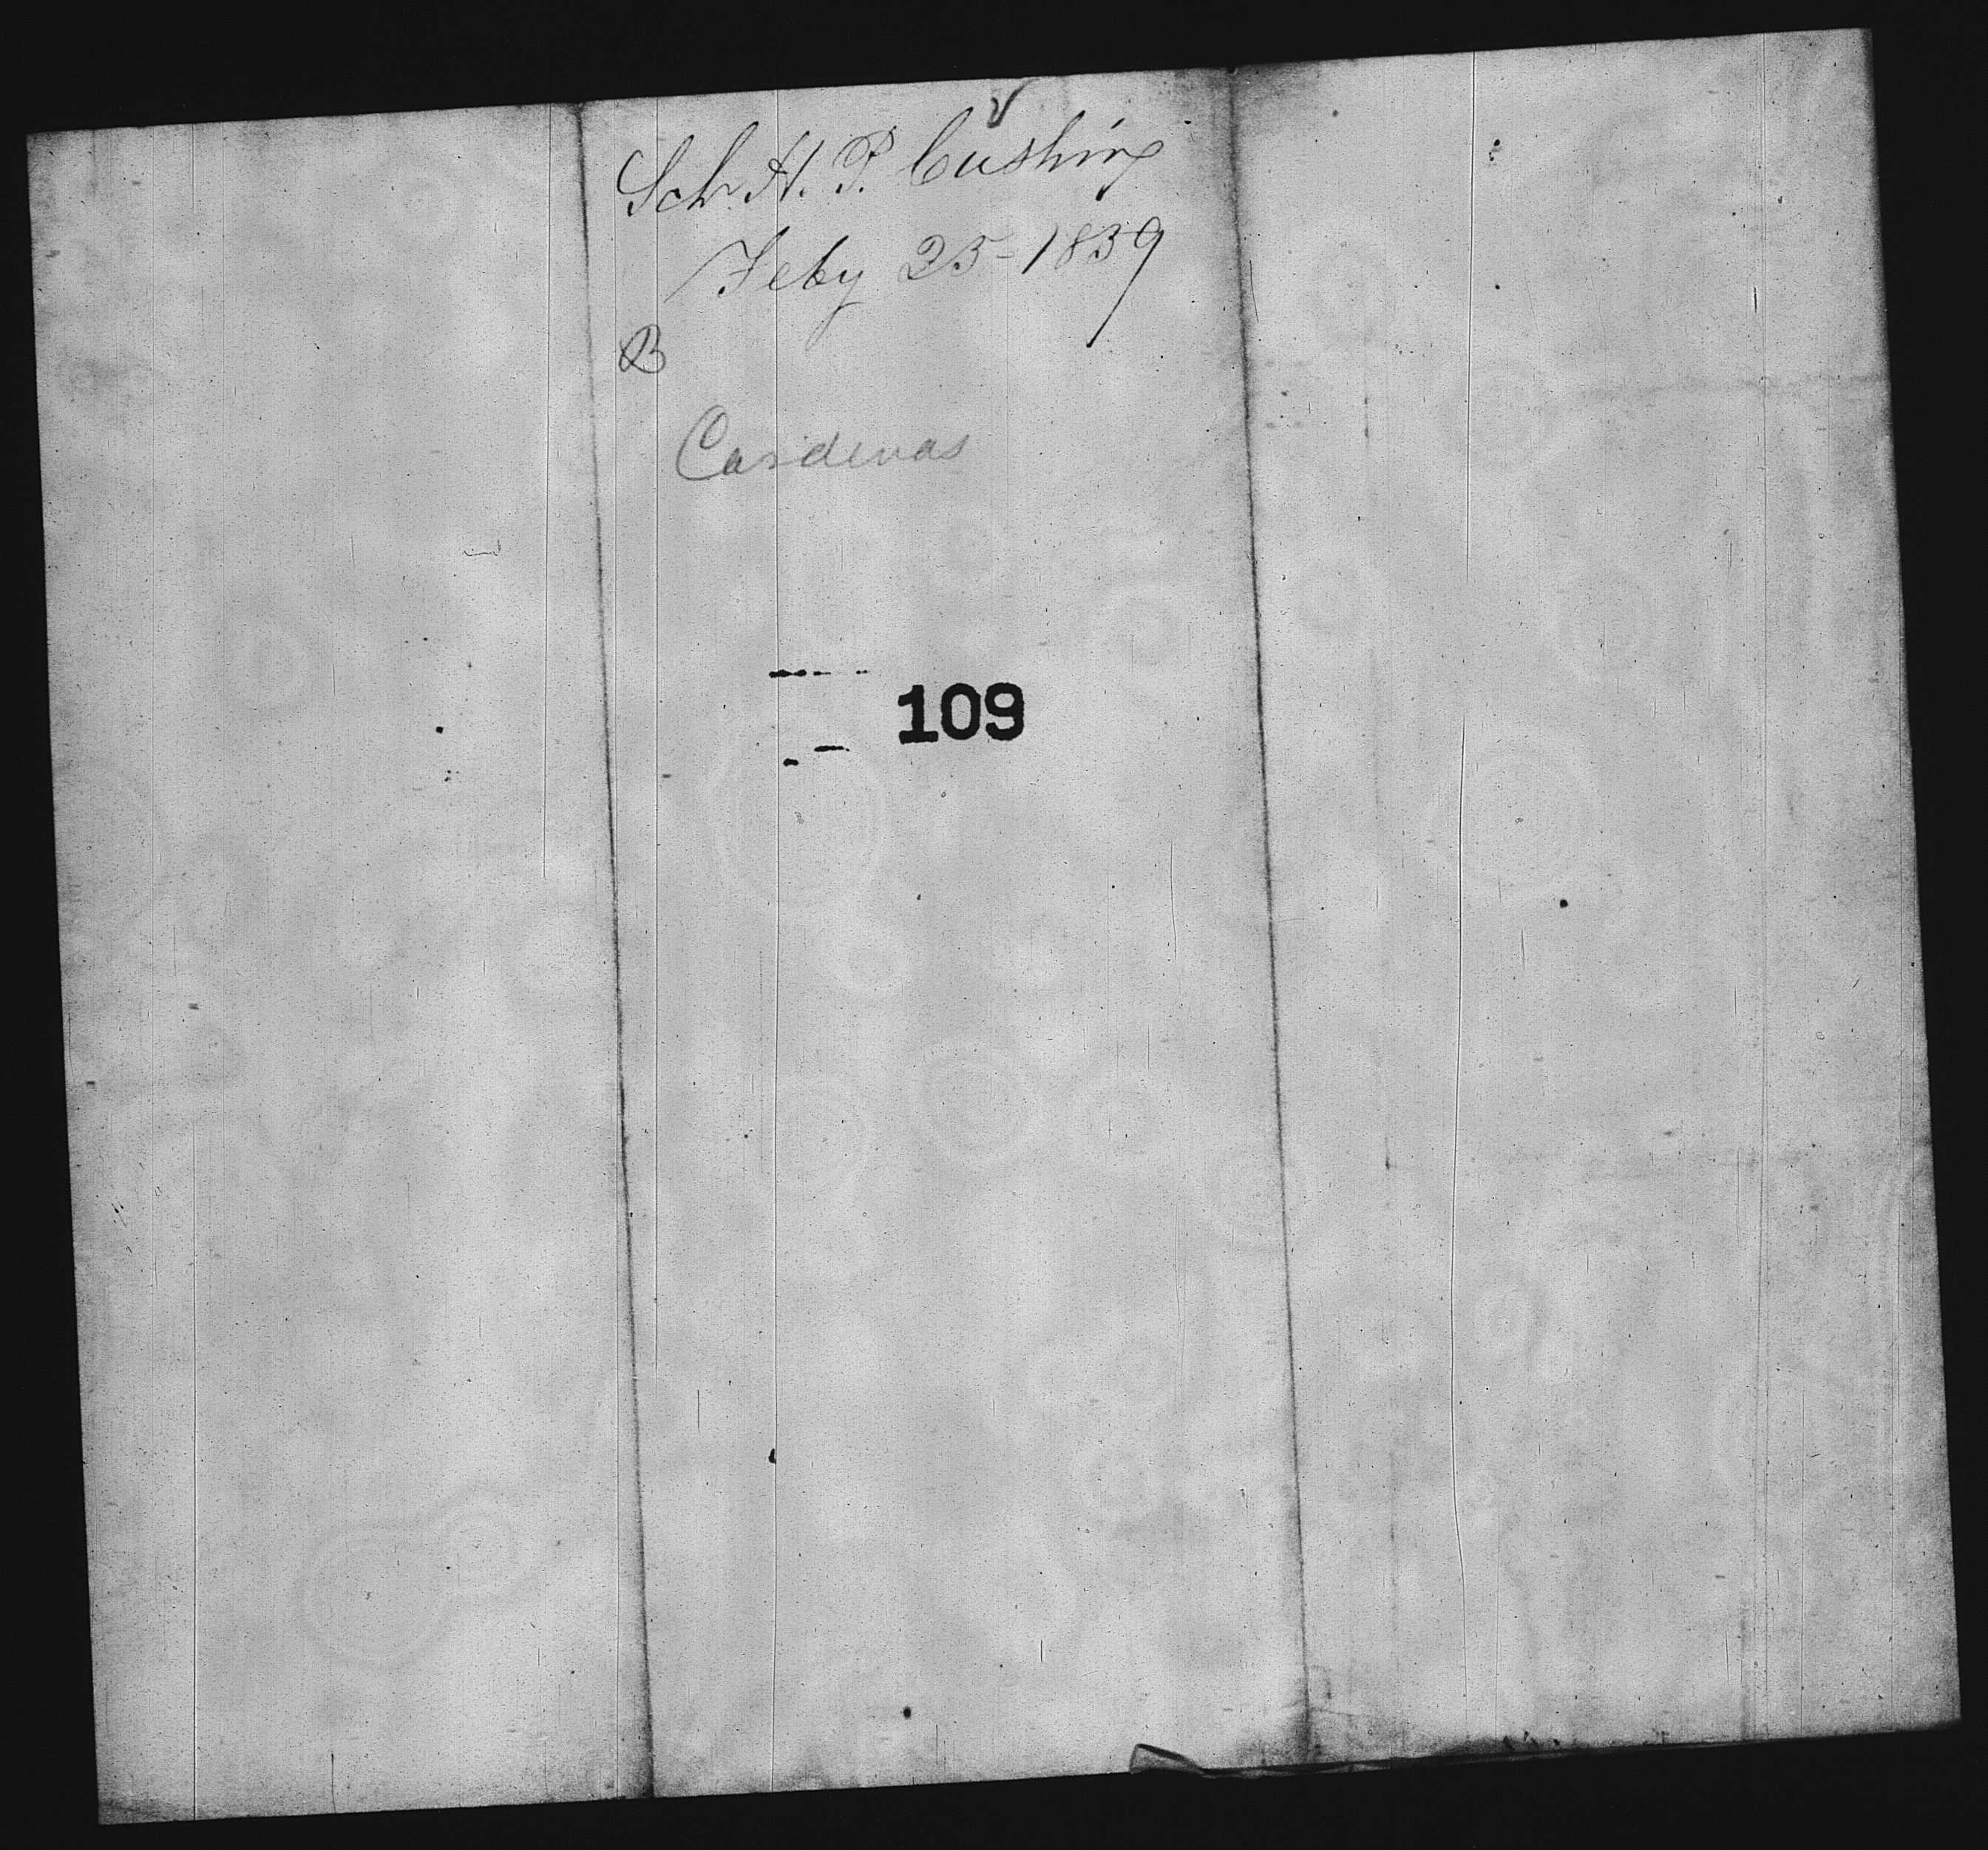 Sch. H. P. Cushing
Feby 25 - 1839
B
Cardenas
109